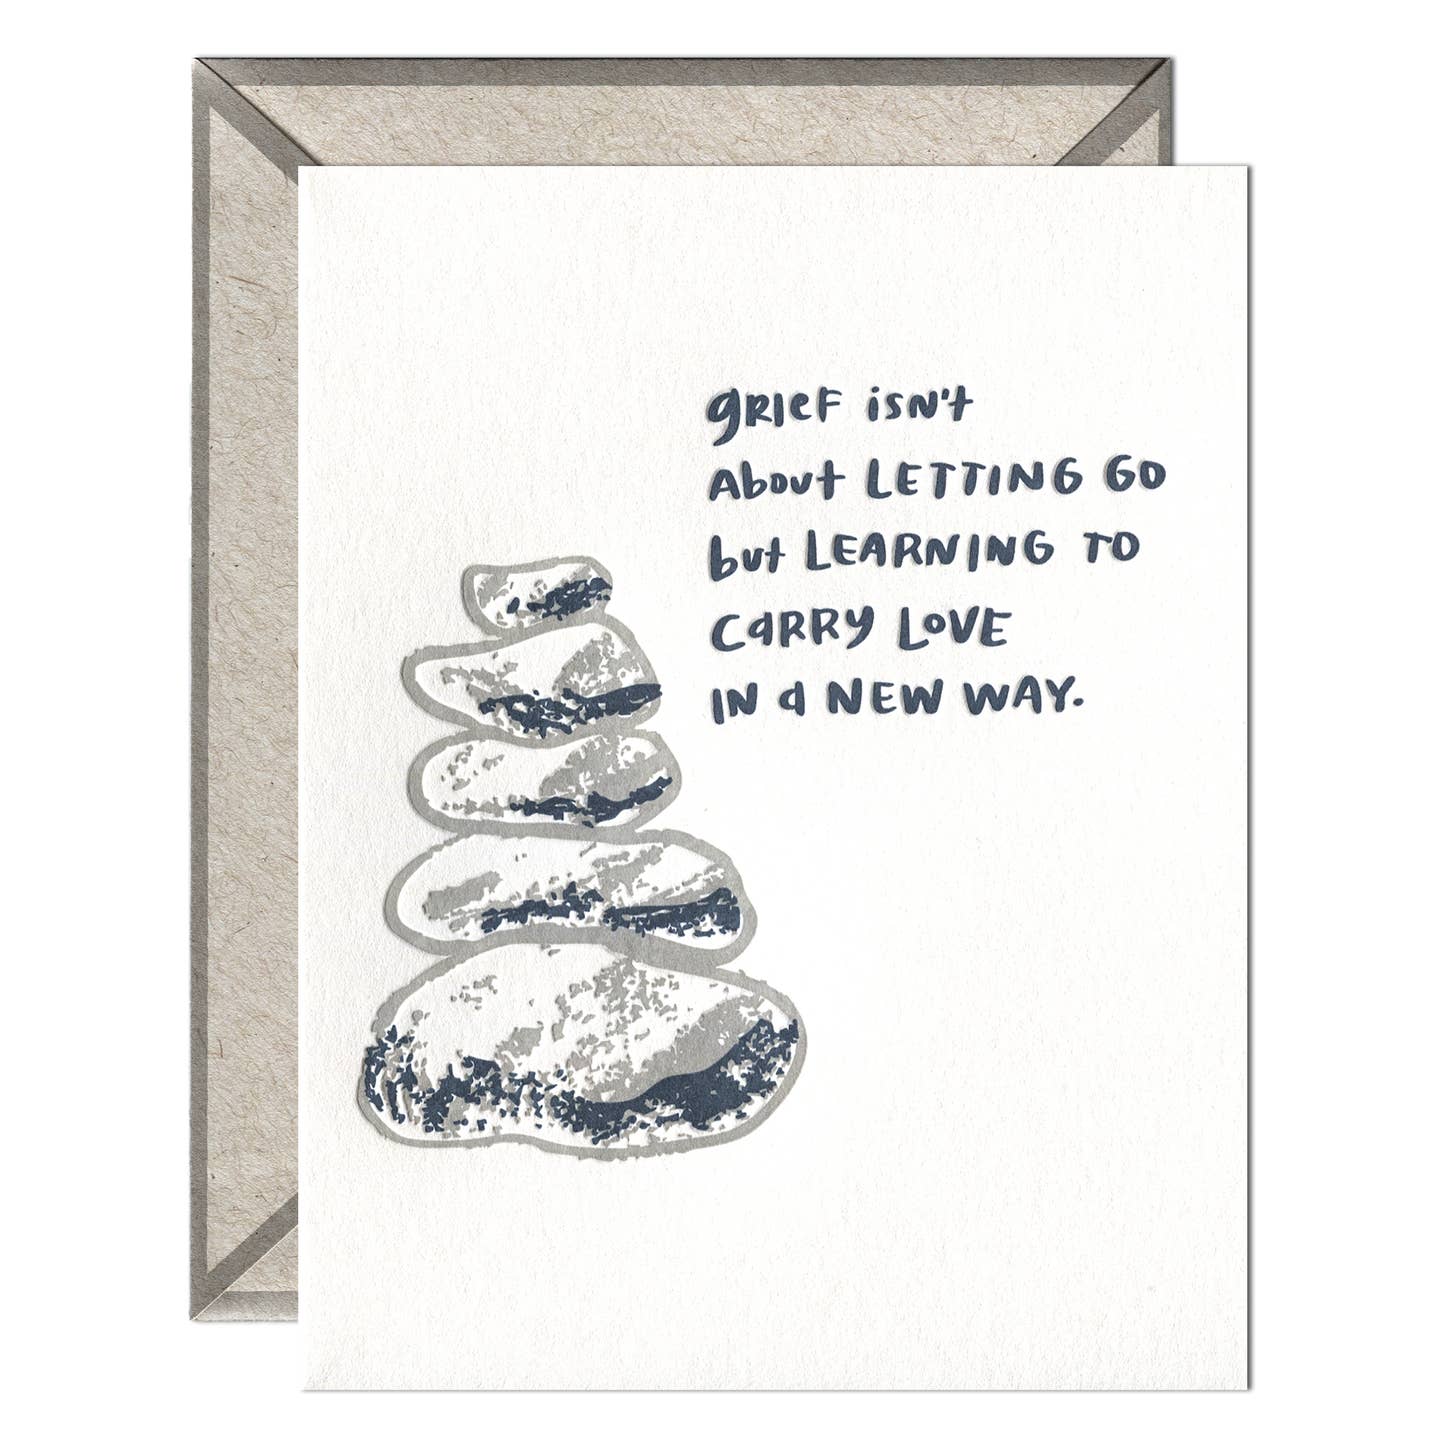 GRIEF isn't
About LETTING GO
but LEARNING TO
CARRY LOVE
IN A NEW WAY.